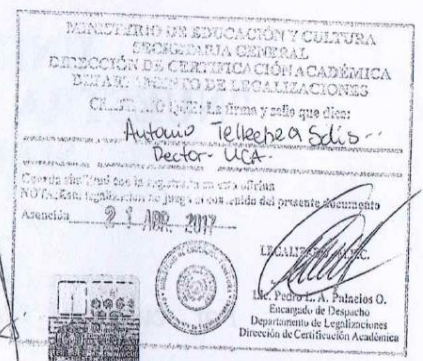 MINISTERIO DE EDUCACIÓN Y CULTURA
SECRETARIA GENERAL
DIRECCIÓN DE CERTIFICACIÓN ACADÉMICA
DEPARTAMENTO DE LEGALIZACIONES
QUE: La firma y sello que dice:
Antonio Solis
Rector - UCA
con la registrada en esta oficina
NOTA: Esta legalización no juzga el contenido del presente documento
Asunción 21 ABR. 2017
Lic. Pedro L. A. Palacios O.
Encargado de Despacho
Departamento de Legalizaciones
Dirección de Certificación Académica